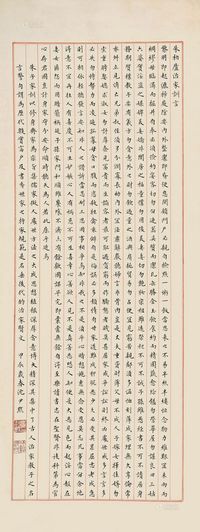 朱柏廬治家訓言
黎明即起灑掃庭除要內外整潔既昏便息關鎖門戶必親自檢點一粥一飯當思來處不易半絲半縷恒念物力維艱宜未雨而
綢繆毋臨渴而掘井自奉必須儉約宴客切勿留連器具質而潔瓦缶勝金玉飲食約而精園蔬愈珍饈勿營華屋勿謀良田三姑
六婆實淫盜之媒婢美妾嬌非閨房之福奴僕勿用俊美妻妾切忌艷妝祖宗雖遠祭祀不可不誠子孫雖愚經書不可不讀居身
務期質樸教子要有義方勿貪意外之財勿飲過量之酒與肩挑貿易毋占便宜見貧苦親鄰須加溫恤刻薄成家理無久享倫常
乖舛立見消亡兄弟叔姪須分多潤寡長幼內外宜法肅辭嚴聽婦言乖骨肉豈是丈夫重貲財薄父母不成人子嫁女擇佳婿毋
索重聘娶媳求淑女勿計厚奩見富貴而生諂容者最可恥遇貧窮而作驕態者賤莫甚居家戒爭訟訟則終凶處世戒多言言多
必失勿恃勢力而凌逼孤寡毋貪口腹而恣殺生禽乖僻自是悔誤必多頹惰自甘家道難成狎暱惡少久必受其累屈志老成急
則可相依輕聽發言安知非人之譖訴當忍耐三思因事相爭焉知非我之不是須平心暗想施惠無念受恩莫忘凡事當留餘地
得意不宜再往人有喜慶不可生妒忌心人有禍患不可生喜幸心善欲人見不是真善惡恐人知便是大惡見色而起淫心報在
妻女匿怨而用暗箭禍延子孫家門和順雖饔飧不繼亦有餘歡國課早完即囊橐無餘自得至樂讀書志在聖賢非徒科第為官
心存君國豈計身家守分安命順時聽天為人若此庶乎近焉
朱子家訓以修身齊家為宗旨集儒家做人處世方法之大成思想植根深厚含義博大精深其集中了古人治家教子之名
言警句謂為歷代殷實富戶及書香世家之持家規範是名垂後代的治家賢文 甲辰歲春沈尹默